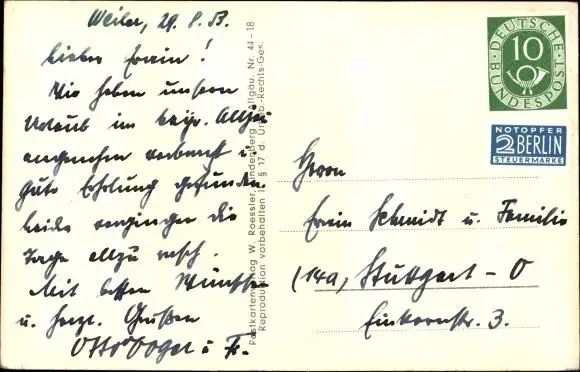 Weiler, 29. 8. 53.
Lieber Erwin!
Wir haben unsern
Urlaub im bayr. Allgäu
angenehm verbracht u.
gute Erholung gefunden
leider vergingen die
Tage allzu rasch.
Mit besten Wünschen
u. herzl. Grüßen
Otto Vogel u. Fr.
Postkartenverlag W. Roessler, Allgäu. Nr. 44-18
Reproduktion vorbehalten § 17 d. Urheb.-Rechts-Ges.
DEUTSCHE
BUNDESPOST
10
NOTOPFER
2 BERLIN
STEUERMARKE
Herrn
Erwin Schmidt u. Familie
(14a) Stuttgart-O
Einkornstr. 3.